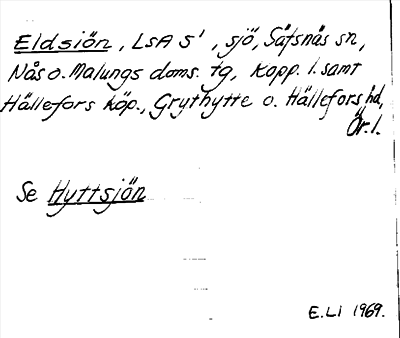 Eldsjön, LsA S¹, sjö, Säfsnäs sn,
Nås o. Malungs doms. tg, Kopp. l. samt
Hällefors köp., Grythytte o. Hällefors hd,
Ör. l.
Se Hyttsjön
E. Li 1969.